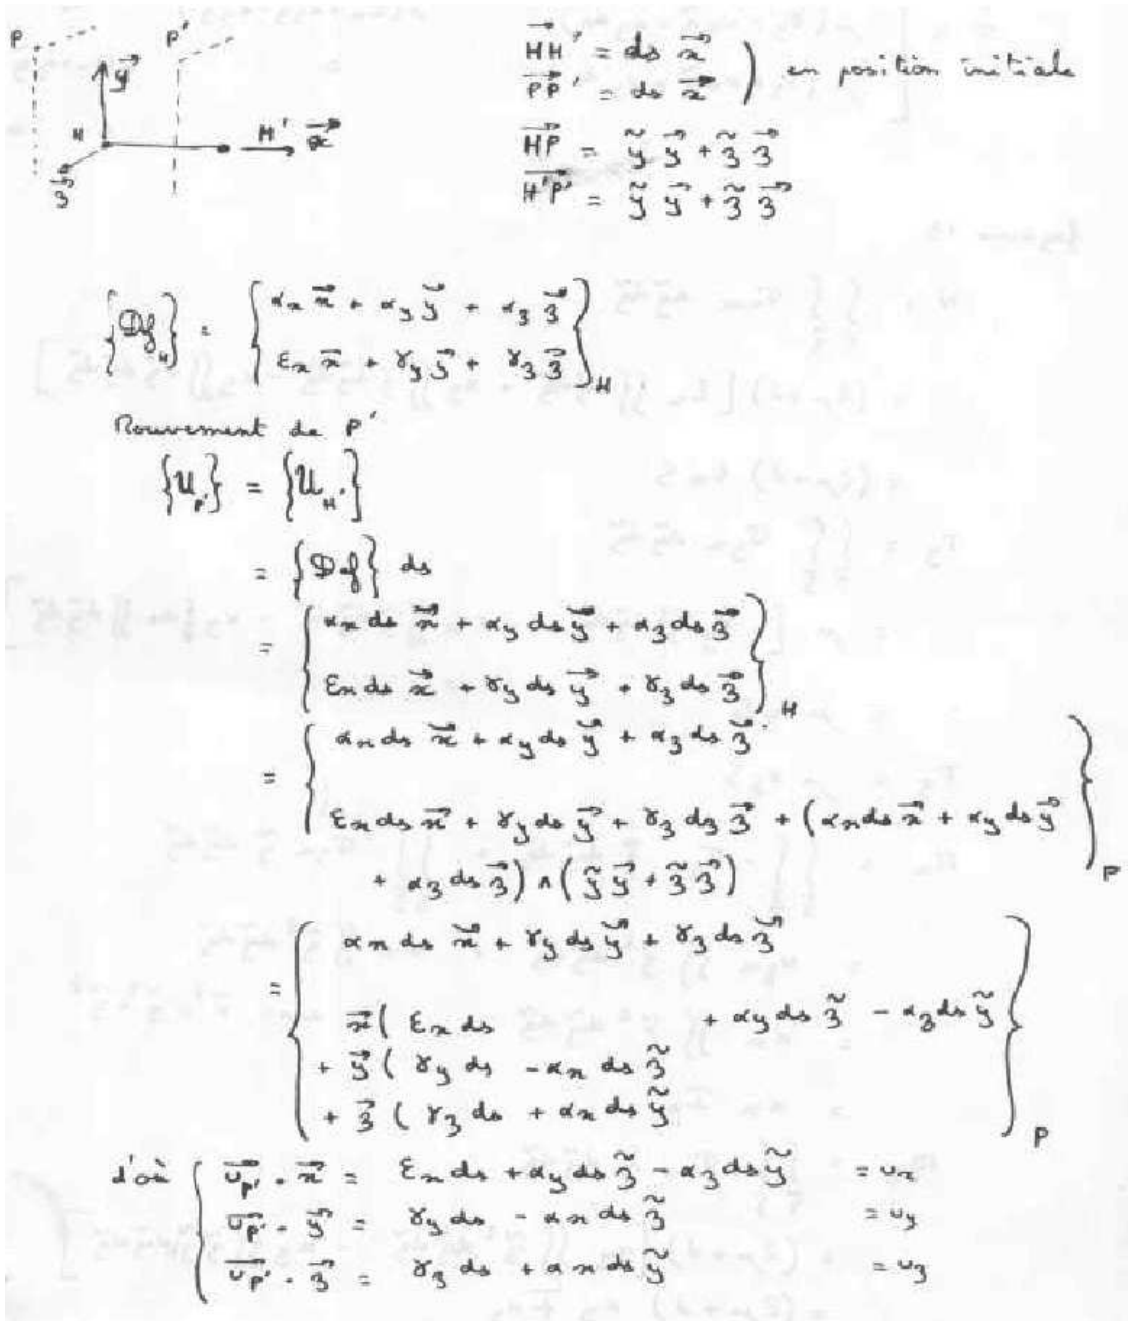 P P' $\vec{y}$
H H' $\vec{x}$
$\vec{z}$
$\overrightarrow{HH'} = ds\ \vec{x}$
$\overrightarrow{PP'} = ds\ \vec{x}$ ) en position initiale
$\overrightarrow{HP} = \tilde{y}\ \vec{y} + \tilde{z}\ \vec{z}$
$\overrightarrow{H'P'} = \tilde{y}\ \vec{y} + \tilde{z}\ \vec{z}$
$\{Def_H\} = \begin{Bmatrix} \alpha_x \vec{x} + \alpha_y \vec{y} + \alpha_z \vec{z} \\ \varepsilon_x \vec{x} + \gamma_y \vec{y} + \gamma_z \vec{z} \end{Bmatrix}_H$
Mouvement de P'
$\{U_{P'}\} = \{U_{H'}\}$
$= \{Def\}\ ds$
$= \begin{Bmatrix} \alpha_x ds\ \vec{x} + \alpha_y ds\ \vec{y} + \alpha_z ds\ \vec{z} \\ \varepsilon_x ds\ \vec{x} + \gamma_y ds\ \vec{y} + \gamma_z ds\ \vec{z} \end{Bmatrix}_{H'}$
$= \begin{Bmatrix} \alpha_x ds\ \vec{x} + \alpha_y ds\ \vec{y} + \alpha_z ds\ \vec{z} \\ \varepsilon_x ds\ \vec{x} + \gamma_y ds\ \vec{y} + \gamma_z dz\ \vec{z} + (\alpha_x ds\ \vec{x} + \alpha_y ds\ \vec{y} \\ + \alpha_z ds\ \vec{z}) \wedge (\tilde{y}\ \vec{y} + \tilde{z}\ \vec{z}) \end{Bmatrix}_P$
$= \begin{Bmatrix} \alpha_x ds\ \vec{x} + \gamma_y ds\ \vec{y} + \gamma_z ds\ \vec{z} \\ \vec{x} ( \varepsilon_x ds + \alpha_y ds\ \tilde{z} - \alpha_z ds\ \tilde{y} \\ + \vec{y} ( \gamma_y ds - \alpha_x ds\ \tilde{z} \\ + \vec{z} ( \gamma_z ds + \alpha_x ds\ \tilde{y} \end{Bmatrix}_P$
d'où { $\overrightarrow{U_{P'}} \cdot \vec{x} = \varepsilon_x ds + \alpha_y ds\ \tilde{z} - \alpha_z ds\ \tilde{y} = u_x$
$\overrightarrow{U_{P'}} \cdot \vec{y} = \gamma_y ds - \alpha_x ds\ \tilde{z} = u_y$
$\overrightarrow{U_{P'}} \cdot \vec{z} = \gamma_z ds + \alpha_x ds\ \tilde{y} = u_z$